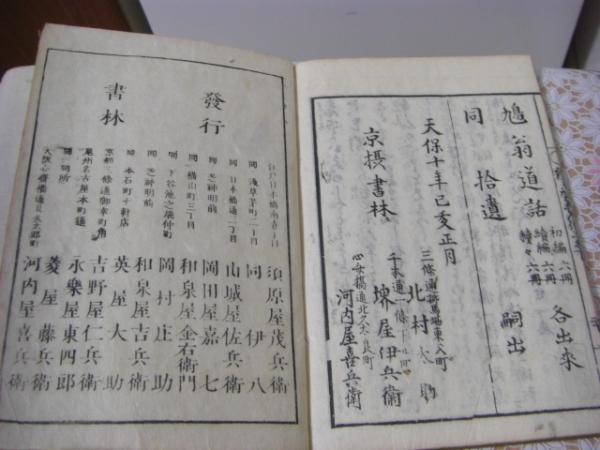 鳩翁道話 初編 六冊 續編 六冊 續々 六冊 各出来
同 拾遺 嗣出
天保十年己亥正月
京摂書林
三條通柳馬場東入町
北村太助
千本通一條
堺屋伊兵衛
心斎橋通北久太良町
河内屋喜兵衛
發行
書林
江戸日本橋南壹丁目 須原屋茂兵衛
同 浅草茅町二丁目 同 伊八
同 日本橋通二丁目 山城屋佐兵衛
同 芝神明前 岡田屋嘉七
同 横山町三丁目 和泉屋金右衛門
同 下谷池之端仲町 岡村庄助
同 芝神明前 和泉屋吉兵衛
同 本石町十軒店 英屋大助
京都三條通御幸町角 吉野屋仁兵衛
尾州名古屋本町通 永樂屋東四郎
同 同所 菱屋藤兵衛
大阪心斎橋通北久太郎町 河内屋喜兵衛